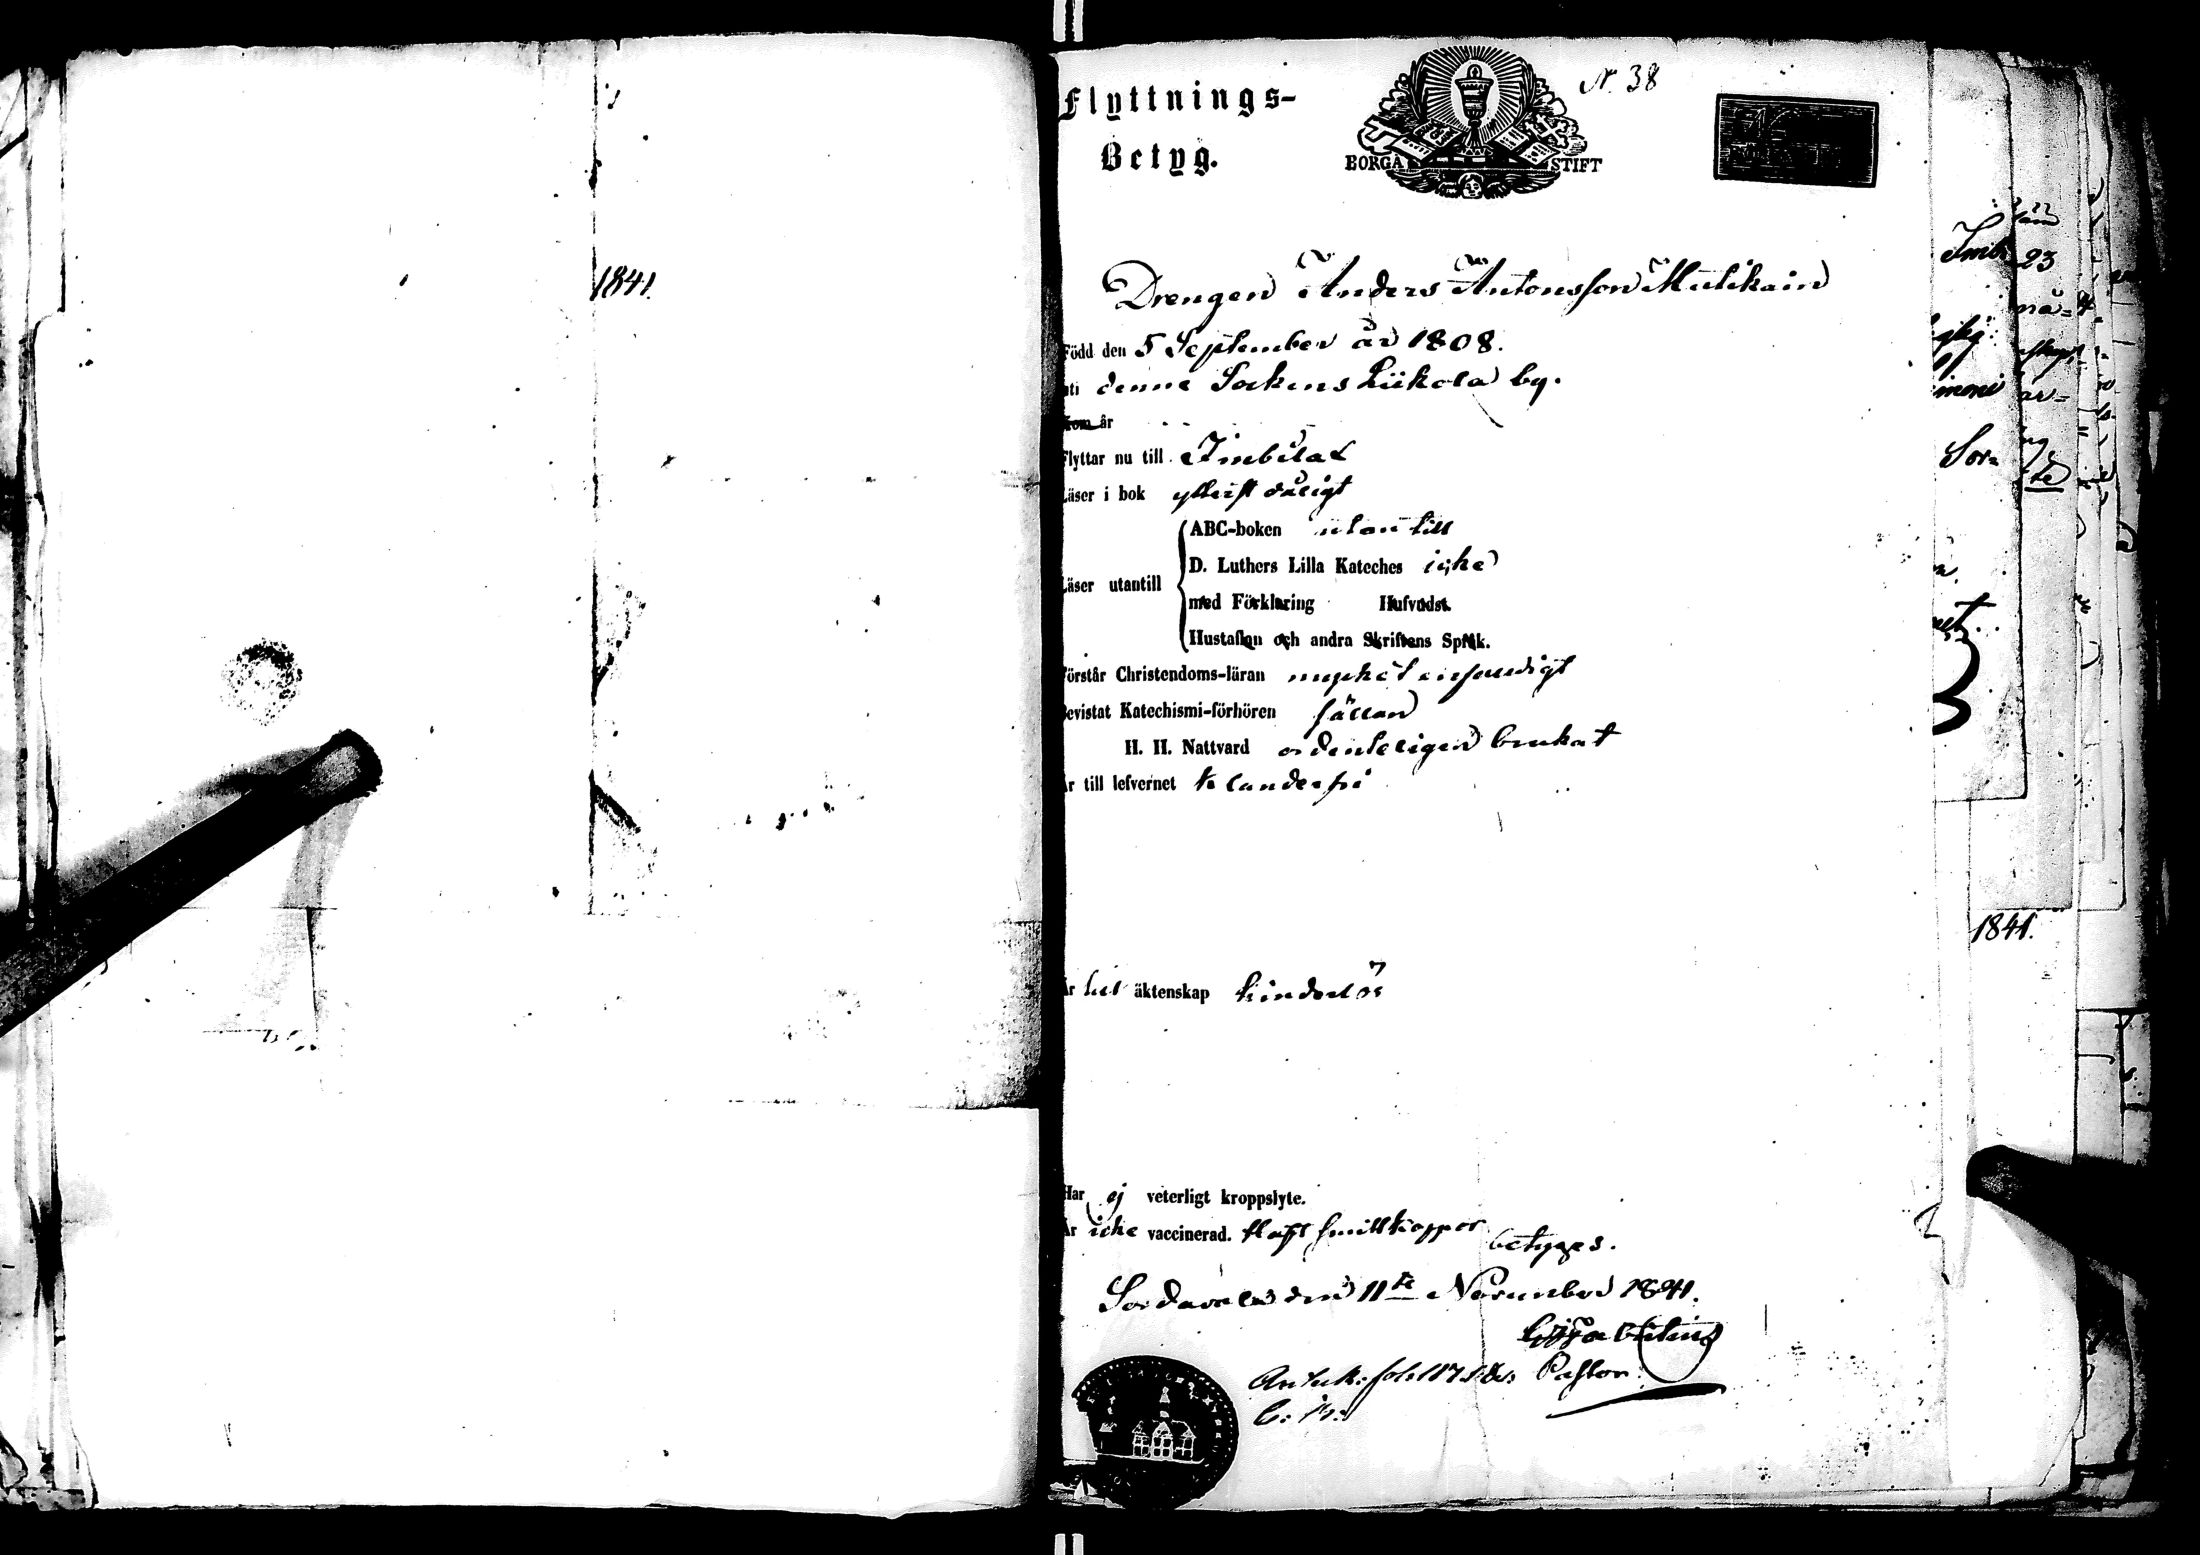 1841.
Flyttnings-
Betyg.
BORGÅ STIFT
N. 38
Drengen Anders Antonsson Mutikain
Född den 5 September år 1808.
uti denne Sockens Liikola by.
kom år
Flyttar nu till Imbilax
Läser i bok ytterst dåligt
Läser utantill
ABC-boken utan till
D. Luthers Lilla Kateches icke
med Förklaring Hufvudst.
Hustaflan och andra Skriftens Språk.
Förstår Christendoms-läran mycket enfaldigt
Bevistat Katechismi-förhören sällan
H. H. Nattvard ordenteligen brukat
Är till lefvernet klanderfri
Är till äktenskap hinderlös
Har ej veterligt kroppslyte.
Är icke vaccinerad. Haft smittkoppor
betyges.
Sordavala den 11te November 1841.
Pastor.
1841.
Imb
23
Sor=